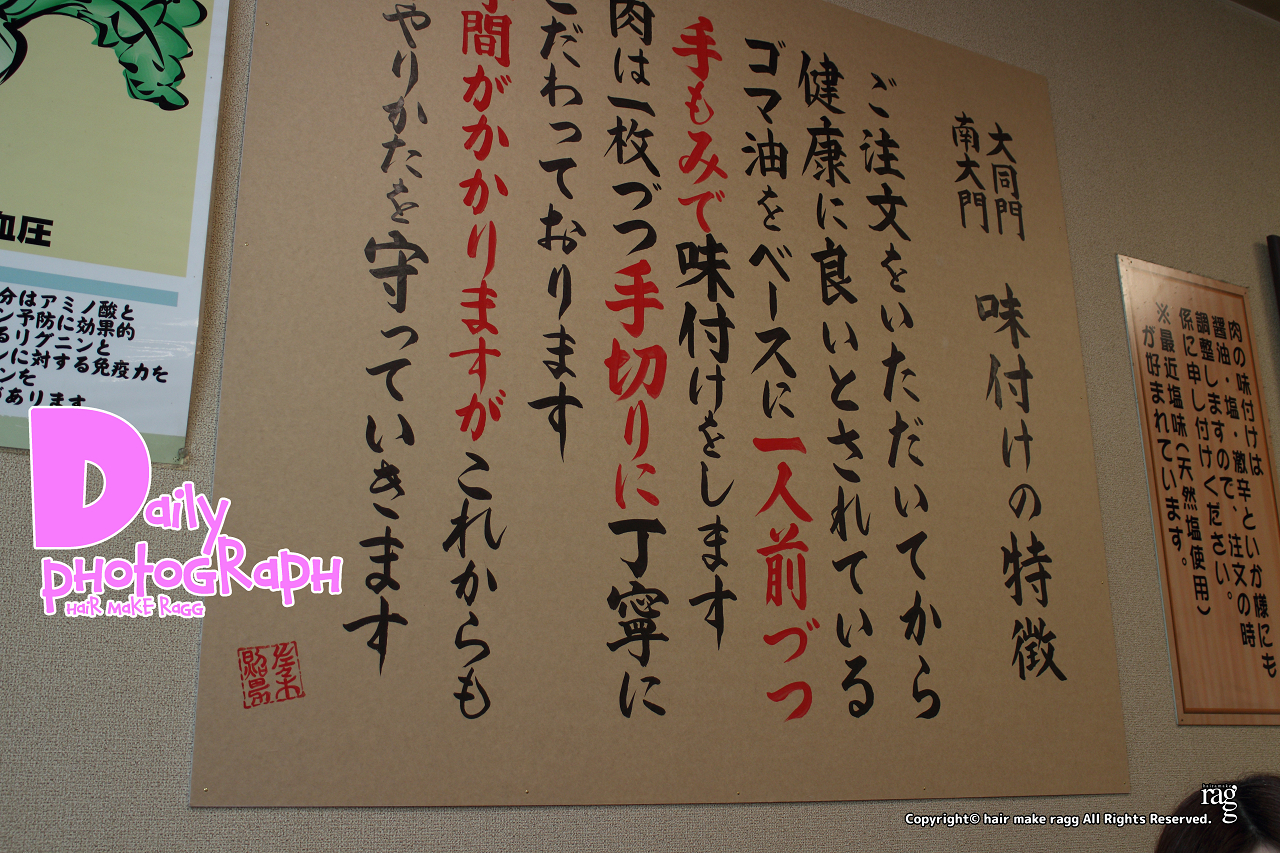 大同門
南大門
味付けの特徴
ご注文をいただいてから
健康に良いとされている
ゴマ油をベースに一人前づつ
手もみで味付けをします
肉は一枚づつ手切りに丁寧に
こだわっております
間がかかりますがこれからも
やりかたを守っていきます
肉の味付けは
醤油・塩・激辛といか様にも
調整しますので、注文の時
係に申し付けください。
※最近塩味(天然塩使用)
が好まれています。
血圧
分はアミノ酸と
ン予防に効果的
るリグニンと
ンに対する免疫力を
ンを
があります
Daily
PHOTOGRAPH
HAIR MAKE RAGG
hairemake
rag
Copyright© hair make ragg All Rights Reserved.